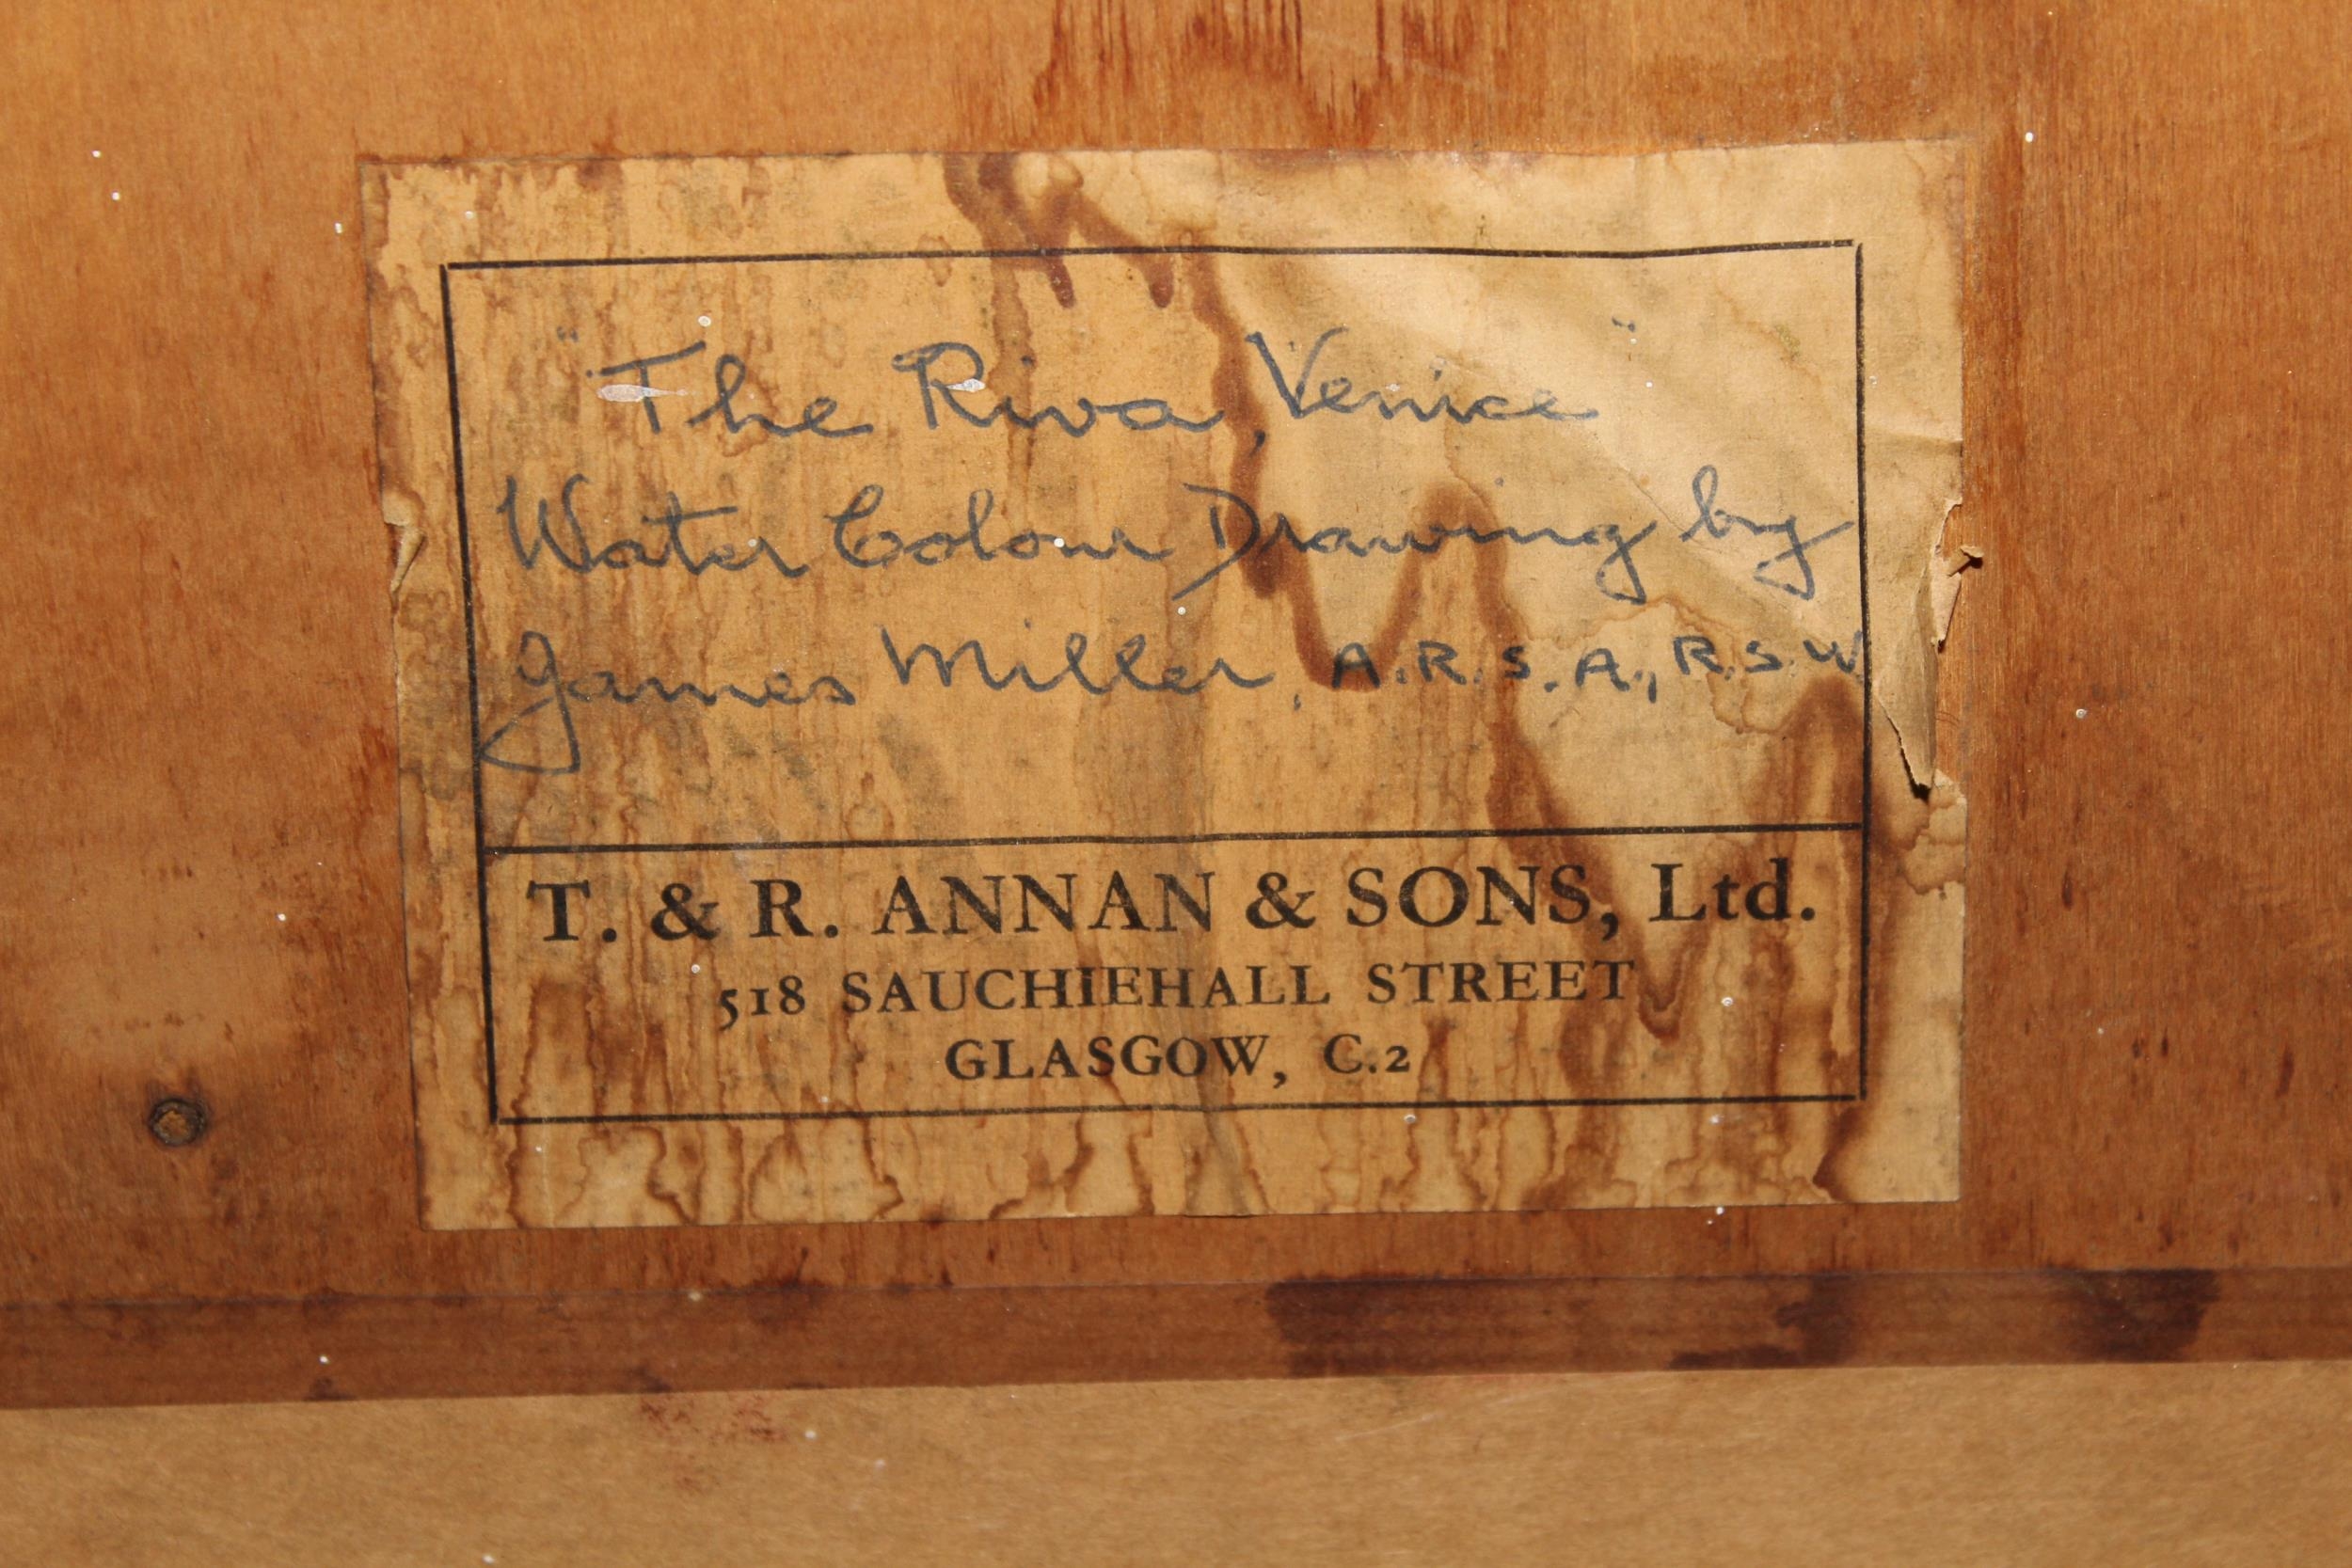 "The Riva, Venice"
Water Colour Drawing by
James Miller, A.R.S.A., R.S.W
T. & R. ANNAN & SONS, Ltd.
518 SAUCHIEHALL STREET
GLASGOW, C.2